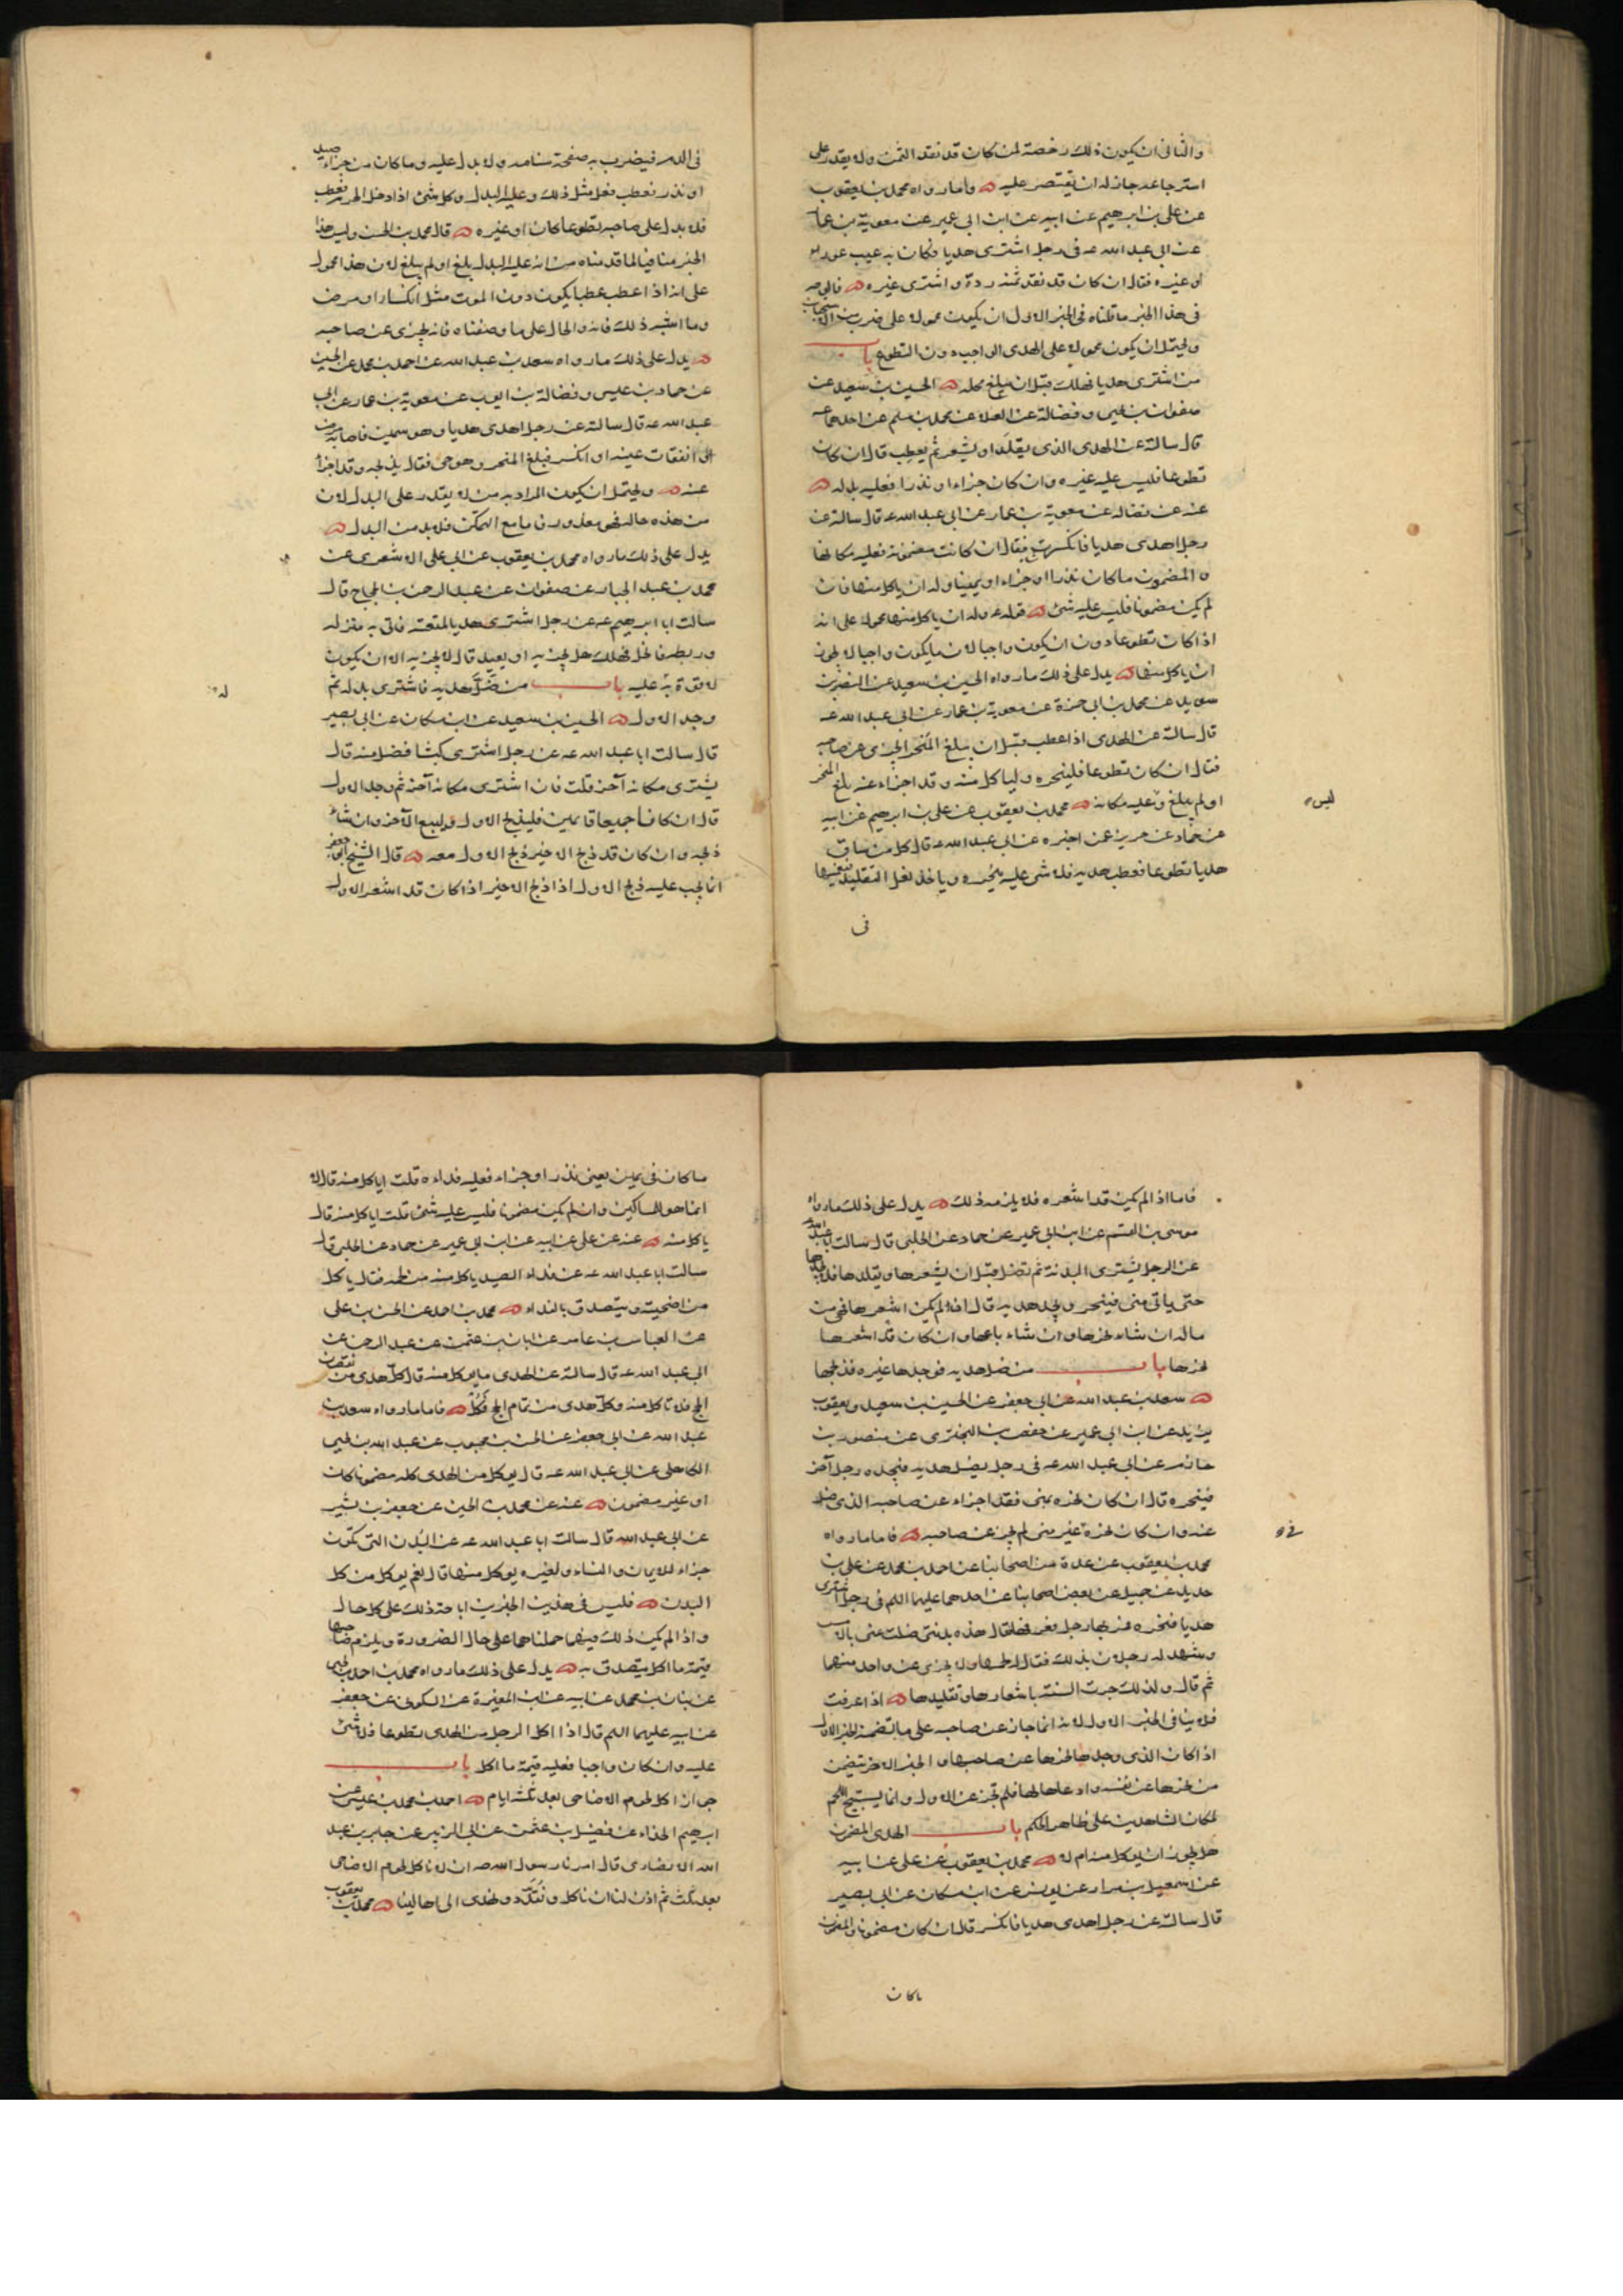 والثانى ان يكون ذلك رخصة لمن كان قد نقد الثمن ولا يقدر على
استرجاعه جاز له ان يقتصر عليه فاما ما رواه محمد بن يعقوب
عن على بن ابرهيم عن ابيه عن ابن ابى عمير عن معوية بن عمار
عن ابى عبد الله عه فى رجل اشترى هديا وكان به عيب عور
او غيره فقال ان كان قد نقد ثمنه رده واشترى غيره فالوجه
فى هذا الخبر ما قلناه فى الخبر الاول ان يكون محمولا على ضرب من الاستحباب
ويحتمل ان يكون محمولا على الهدى الواجب دون التطوع باب
من اشترى هديا فهلك قبل ان يبلغ محله الحسين بن سعيد عن
صفوان بن يحيى وفضالة عن العلا عن محمد بن مسلم عن احدهما عه
قال سالته عن الهدى الذى يقلد او يشعر ثم يعطب قال ان كان
تطوعا فليس عليه غيره وان كان جزاء او نذرا فعليه بدله
عنه عن فضاله عن معوية بن عمار عن ابى عبد الله عه قال سالته عن
رجل اهدى هديا فانكسرت فقال ان كانت مضمونة فعليه مكانها
والمضمون ما كان نذرا او جزاء او يمينا وله ان ياكل منها فان
لم يكن مضمونا فليس عليه شئ قوله عه وله ان ياكل منها محمول على انه
اذا كان تطوعا دون ان يكون واجبا لان ما يكون واجبا لا يجوز
ان ياكل منها يدل على ذلك ما رواه الحسين بن سعيد عن النضر بن
سويد عن محمد بن ابى حمزة عن معوية بن عمار عن ابى عبد الله عه
قال سالته عن الهدى اذا عطب قبل ان يبلغ المنحر ايجزى عن صاحبه
فقال ان كان تطوعا فلينحره ولياكل منه وقد اجزاء عنه بلغ المنحر
او لم يبلغ وعليه مكانه محمد بن يعقوب عن على بن ابرهيم عن ابيه
ليس
عن حماد عن حريز عمن اخبره عن ابى عبد الله عه قال كل من ساق
هديا تطوعا فعطب هديه فلا شى عليه ينحره وياخذ نعل التقليد فيغمسها
فى
فى الدم فيضرب به صفحة سنامه ولا بدل عليه وما كان من جزاء صيد
او نذر فعطب فعل مثل ذلك وعليه البدل وكل شئ اذا دخل الحرم فعطب
فلا بدل على صاحبه تطوعا كان او غيره قال محمد بن الحسن وليس هذا
الخبر منافيا لما قدمناه من انه عليه البدل بلغ او لم يبلغ لان هذا محمول
على انه اذا عطب عطبا يكون دون الموت مثل انكسار او مرض
وما اشبه ذلك فانه والحال على ما وصفناه فانه يجزى عن صاحبه
يدل على ذلك ما رواه سعد بن عبد الله عن احمد بن محمد عن الحسين
عن حماد بن عيسى وفضالة بن ايوب عن معوية بن عمار عن ابى
عبد الله عه قال سالته عن رجل اهدى هديا وهو سمين فاصابه مرض
وانفقات عينه او انكسر فبلغ المنحر وهو حى فقال يذبحه وقد اجزأ
عنه ويحتمل ان يكون المراد به من لا يقدر على البدل لان
من هذه حاله فهو معذور فاما مع التمكن فلا بد من البدل
يدل على ذلك ما رواه محمد بن يعقوب عن ابى على الاشعرى عن
محمد بن عبد الجبار عن صفوان عن عبد الرحمن بن الحجاج قال
سالت ابا ابرهيم عه عن رجل اشترى هديا لمتعته فاتى به منزله
وربطه فانحل فهلك هل يجزيه او يعيد قال لا يجزيه الا ان يكون
لا قوة به عليه باب من ضل هديه فاشترى بدله ثم
وجد الاول الحسين بن سعيد عن ابن مسكان عن ابى بصير
قال سالت ابا عبد الله عه عن رجل اشترى كبشا فضل منه قال
يشترى مكانه آخر قلت فان اشترى مكانه آخر ثم وجد الاول
قال ان كانا جميعا قائمين فليذبح الاول وليبع الآخر وان شاء
ذبحه وان كان قد ذبح الاخير ذبح الاول معه قال الشيخ ابو جعفر
انما يجب عليه ذبح الاول اذا ذبح الاخير اذا كان قد اشعر الاول
فاما اذا لم يكن قد اشعره فلا يلزمه ذلك يدل على ذلك ما رواه
موسى بن القسم عن ابن ابى عمير عن حماد عن الحلبى قال سالت ابا عبد الله
عن الرجل يشترى البدنة ثم تضل قبل ان يشعرها ويقلدها فلا يجدها
حتى ياتى منى فينحر ويجد هديه قال ان لم يكن اشعرها فهى من
ماله ان شاء نحرها وان شاء باعها وان كان قد اشعرها
نحرها باب من ضل هديه فوجدها غيره فذبحها
سعد بن عبد الله عن ابى جعفر عن الحسين بن سعيد ويعقوب
بن يزيد عن ابن ابى عمير عن حفص بن البخترى عن منصور بن
حازم عن ابى عبد الله عه فى رجل يضل هديه فيجده رجل آخر
فينحره قال ان كان نحره بمنى فقد اجزاء عن صاحبه الذى ضل
عنه وان كان نحره غير منى لم يجز عن صاحبه فاما ما رواه
محمد بن يعقوب عن عدة من اصحابنا عن احمد بن محمد عن على بن
حديد عن جميل عن بعض اصحابنا عن احدهما عليهما السلم فى رجل اشترى
هديا فنحره فمر بها رجل فعرفها فقال هذه بدنتى ضلت منى بالامس
وشهد له رجلان بذلك فقال له لحمها ولا يجزى عن واحد منهما
ثم قال ولذلك جرت السنة باشعارها وتقليدها اذا عرفت
فلا ينافى الخبر الاول لانه انما جاز عن صاحبه على ما تضمنه الخبر الاول
اذا كان الذى وجدها نحرها عن صاحبها والخبر الاخر تضمن
من نحرها عن نفسه وادعاها لها فلم تجز عن الاول وانما يستبيح اللحم
لمكان الشاهدين على ظاهر الحكم باب الهدى المضمون
هل يجوز ان يوكل منه ام لا محمد بن يعقوب عن على عن ابيه
عن اسمعيل بن مرار عن يونس عن ابن مسكان عن ابى بصير
قال سالته عن رجل اهدى هديا فانكسر قال ان كان مضمونا والمضمون
ما كان
ما كان فى يمين يعنى نذر او جزاء فعليه فداءه قلت اياكل منه قال لا
انما هو للمساكين وان لم يكن مضمونا فليس عليه شئ قلت اياكل منه قال
ياكل منه عنه عن على عن ابيه عن ابن ابى عمير عن حماد عن الحلبى قال
سالت ابا عبد الله عه عن فداء الصيد ياكل منه من لحمه فقال ياكل
من اضحيته ويتصدق بالفداء محمد بن احمد عن الحسن بن على
عن العباس بن عامر عن ابان بن عثمن عن عبد الرحمن عن
ابى عبد الله عه قال سالته عن الهدى ما يوكل منه قال كل هدى من نقصان
الحج فلا تاكل منه وكل هدى من تمام الحج فكل فاما ما رواه سعد بن
عبد الله عن ابى جعفر عن الحسن بن محبوب عن عبد الله بن يحيى
الكاهلى عن ابى عبد الله عه قال يوكل من الهدى كله مضمونا كان
او غير مضمون عنه عن محمد بن الحسين عن جعفر بن بشير
عن ابى عبد الله قال سالت ابا عبد الله عه عن البدن التى تكون
جزاء للايمان والنساء ولغيره يوكل منها قال نعم يوكل من كل
البدن فليس فى هذين الخبرين اباحة ذلك على كل حال
واذا لم يكن ذلك فيهما حملناهما على حال الضرورة ويلزم صاحبها
قيمة ما اكل يتصدق به يدل على ذلك ما رواه محمد بن احمد بن يحيى
عن بنان بن محمد عن ابيه عن ابن المغيرة عن السكونى عن جعفر
عن ابيه عليهما السلم قال اذا اكل الرجل من الهدى تطوعا فلا شئ
عليه وان كان واجبا فعليه قيمة ما اكل باب
جواز اكل لحوم الاضاحى بعد ثلثة ايام احمد بن محمد بن عيسى عن
ابرهيم الحذاء عن فضيل بن عثمن عن ابى الزبير عن جابر بن عبد
الله الانصارى قال امرنا رسول الله صه ان لا ناكل لحوم الاضاحى
بعد ثلث ثم اذن لنا ان ناكل ونقدد ونهدى الى اهالينا محمد بن يعقوب